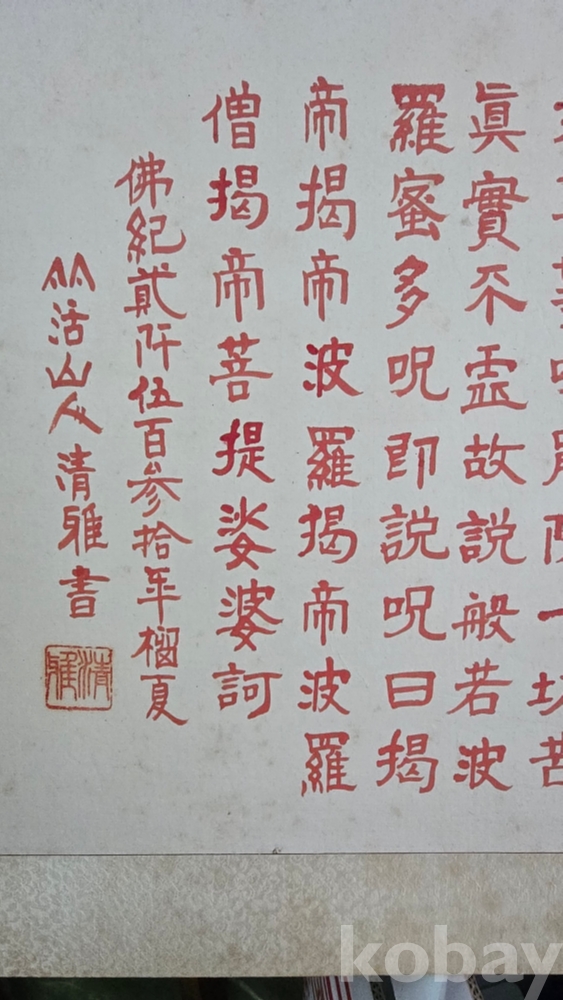 除一切苦
眞實不虛故說般若波
羅蜜多呪即說呪曰揭
帝揭帝波羅揭帝波羅
僧揭帝菩提娑婆訶
佛紀貳阡伍百參拾年榴夏
活山人清雅書
清雅
kobay